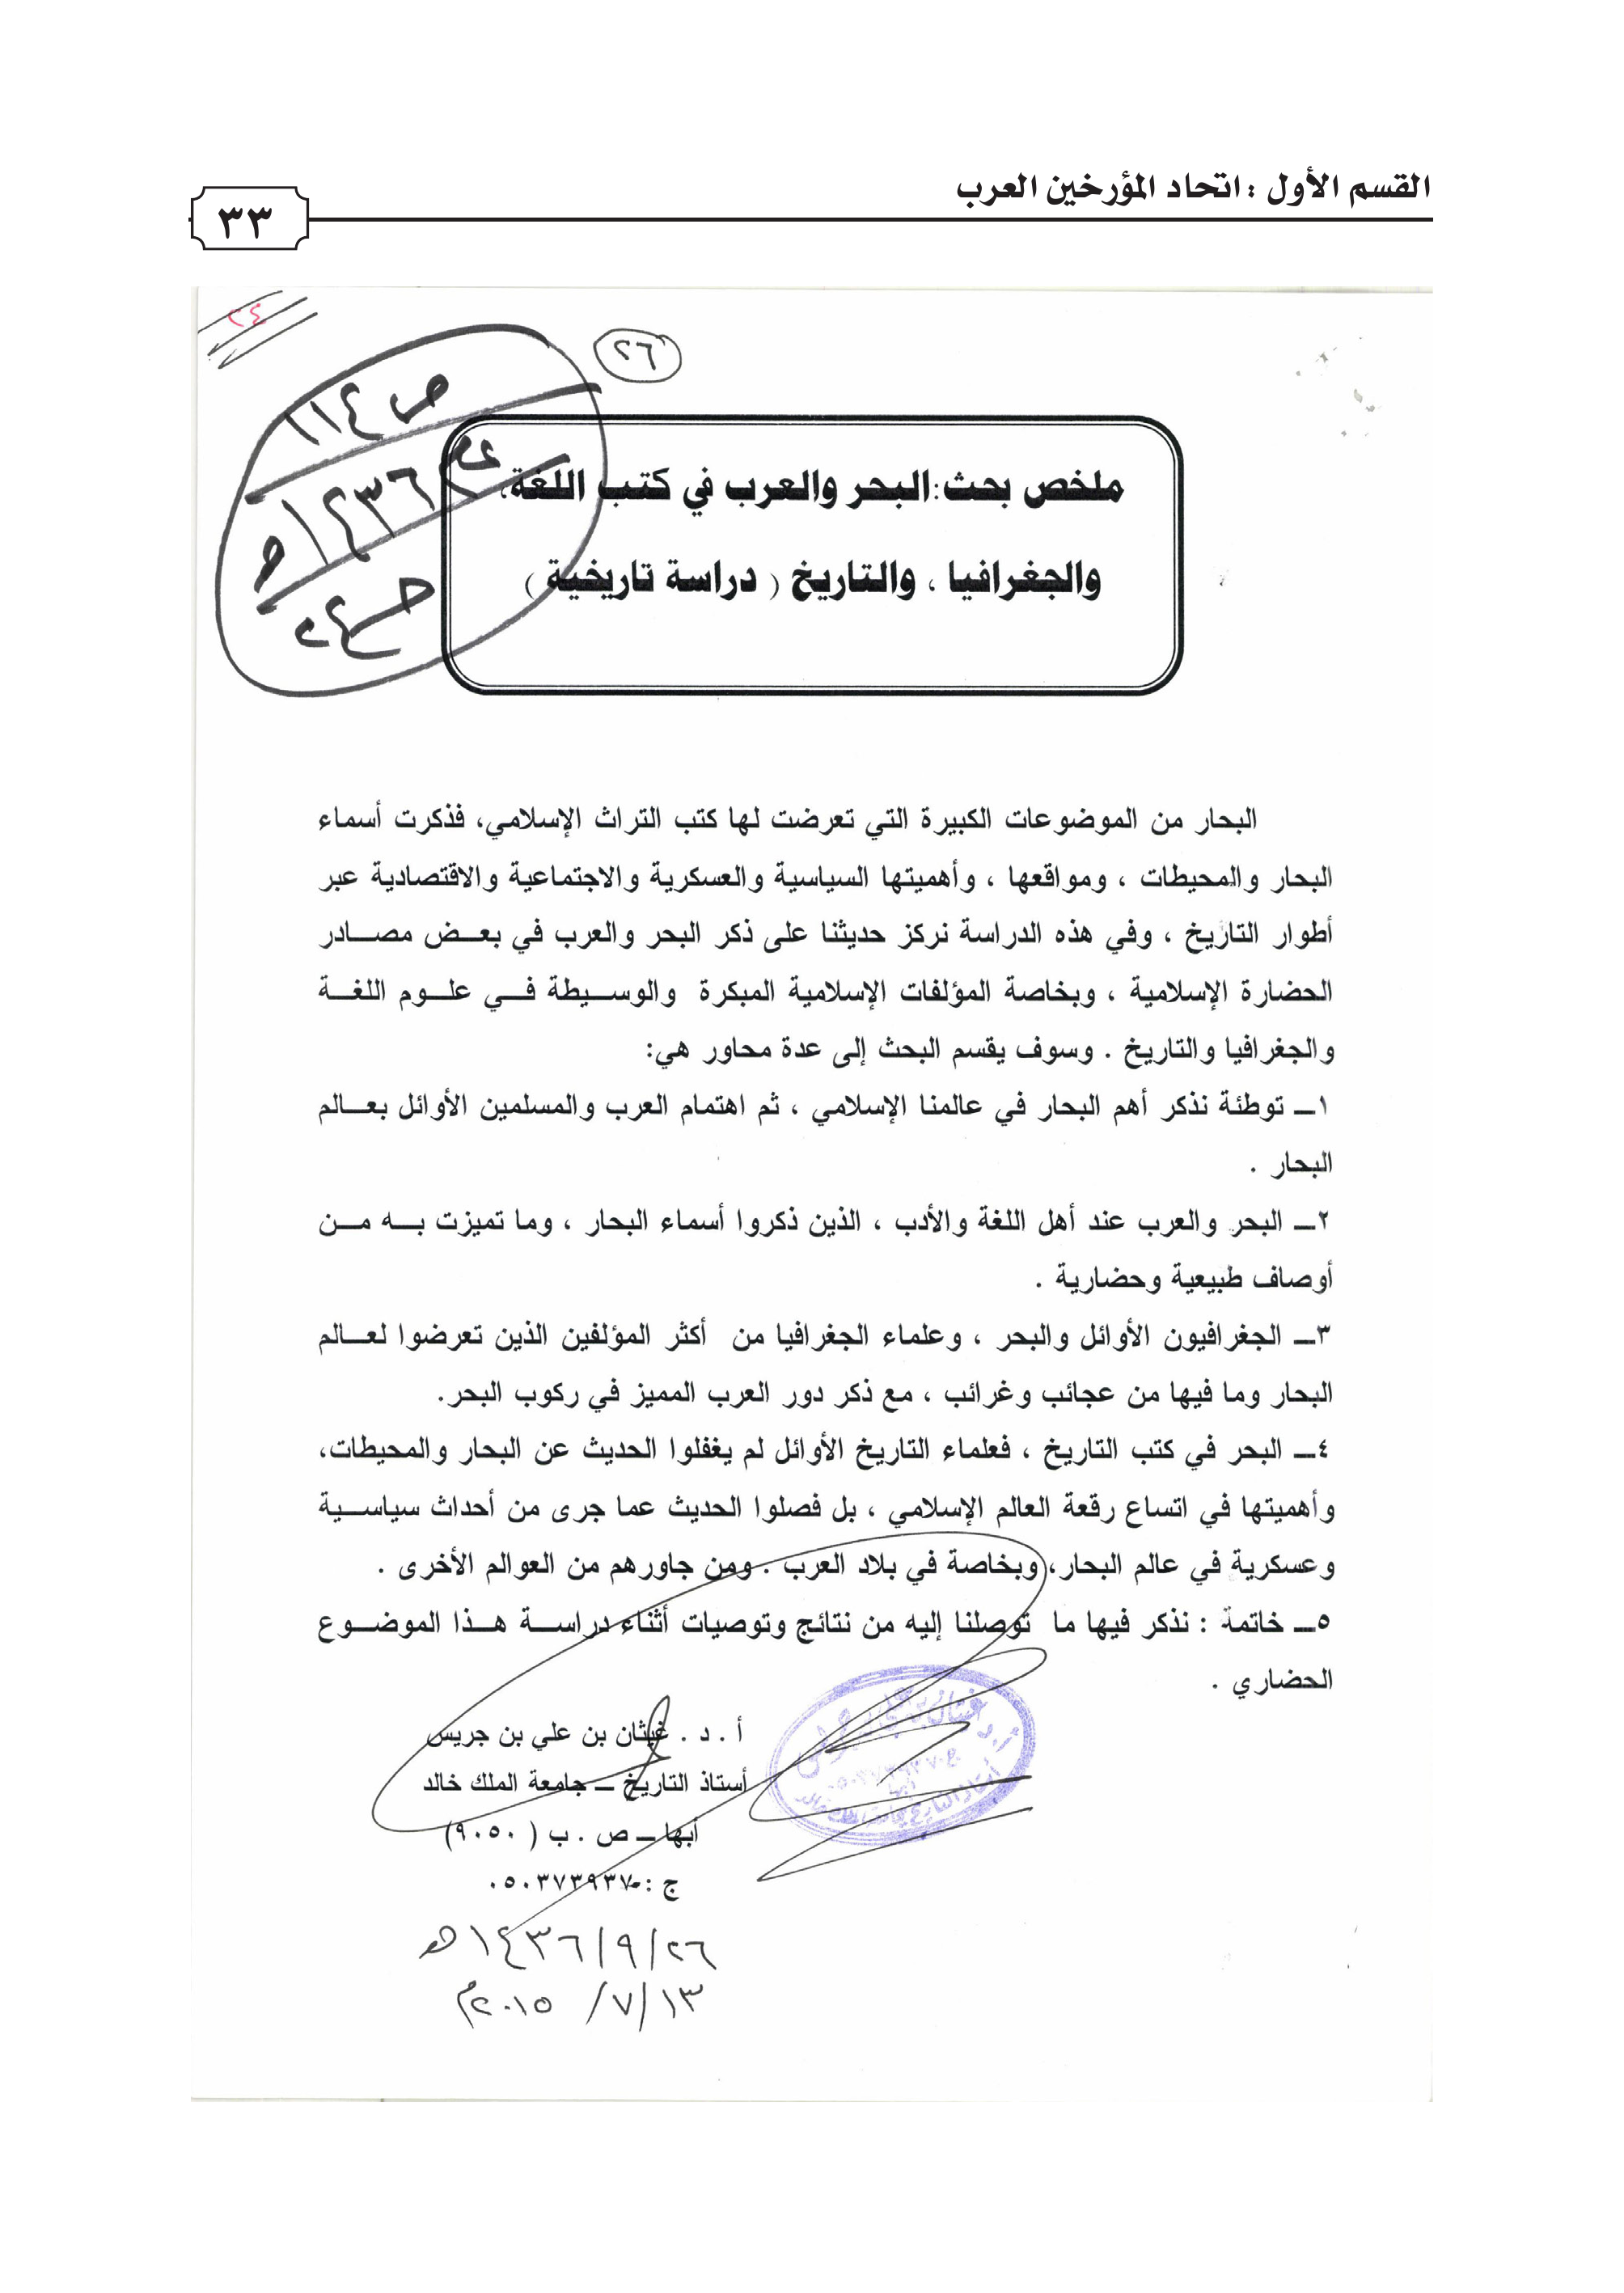 القسم الأول : اتحاد المؤرخين العرب
٣٣
٢٤
٢٦
ص ١١٤
١٤٣٦هـ
حـ ٢٤
ملخص بحث:البحر والعرب في كتب اللغة،
والجغرافيا ، والتاريخ ( دراسة تاريخية )
البحار من الموضوعات الكبيرة التي تعرضت لها كتب التراث الإسلامي، فذكرت أسماء
البحار والمحيطات ، ومواقعها ، وأهميتها السياسية والعسكرية والاجتماعية والاقتصادية عبر
أطوار التاريخ ، وفي هذه الدراسة نركز حديثنا على ذكر البحر والعرب في بعض مصادر
الحضارة الإسلامية ، وبخاصة المؤلفات الإسلامية المبكرة والوسيطة في علوم اللغة
والجغرافيا والتاريخ . وسوف يقسم البحث إلى عدة محاور هي:
١ـ توطئة نذكر أهم البحار في عالمنا الإسلامي ، ثم اهتمام العرب والمسلمين الأوائل بعالم
البحار .
٢ـ البحر والعرب عند أهل اللغة والأدب ، الذين ذكروا أسماء البحار ، وما تميزت به من
أوصاف طبيعية وحضارية .
٣ـ الجغرافيون الأوائل والبحر ، وعلماء الجغرافيا من أكثر المؤلفين الذين تعرضوا لعالم
البحار وما فيها من عجائب وغرائب ، مع ذكر دور العرب المميز في ركوب البحر.
٤ـ البحر في كتب التاريخ ، فعلماء التاريخ الأوائل لم يغفلوا الحديث عن البحار والمحيطات،
وأهميتها في اتساع رقعة العالم الإسلامي ، بل فصلوا الحديث عما جرى من أحداث سياسية
وعسكرية في عالم البحار، وبخاصة في بلاد العرب . ومن جاورهم من العوالم الأخرى .
٥ـ خاتمة : نذكر فيها ما توصلنا إليه من نتائج وتوصيات أثناء دراسة هذا الموضوع
الحضاري .
أ . د . غيثان بن علي بن جريس
أستاذ التاريخ ـ جامعة الملك خالد
أبها ـ ص . ب ( ٩٠٥٠)
ج : ٠٥٠٣٧٣٩٣٧٠
٢٦/٩/١٤٣٦هـ
١٣/٧/ ٢٠١٥م